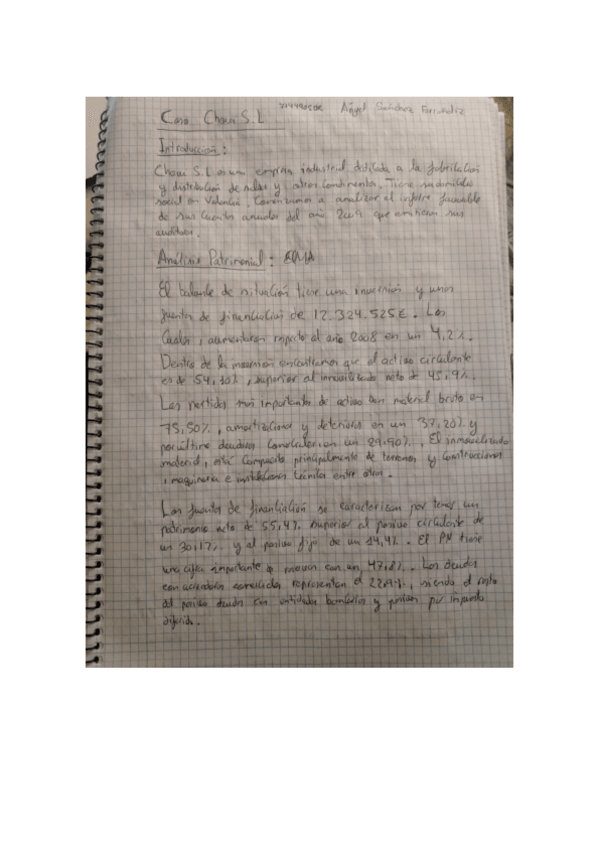 Caso Chaui S.L Ángel Sánchez Fernández
Introducción:
Chaui S.L es una empresa industrial dedicada a la fabricación
y distribución de sillas y otros Tiene su domicilio
social en Valencia. Comenzamos a analizar el informe favorable
de sus cuentas anuales del año 2009 que emitieron sus
auditores.
Análisis Patrimonial:
El balance de situación tiene una inversión y unas
fuentes de financiación de 12.324.525€. Las
cuales, aumentaron respecto al año 2008 en un 4,2%.
Dentro de la inversión encontramos que el activo circulante
es de 54,10%, superior al inmovilizado neto de 45,9%.
Las partidas más importantes de activo son material bruto en
75,50%, amortizaciones y deterioros en un 37,20% y
por último deudores comerciales en un 29,90%. El inmovilizado
material, está compuesto principalmente de terrenos y construcciones
, maquinaria e instalaciones técnicas entre otros.
Las fuentes de financiación se caracterizan por tener un
patrimonio neto de 55,4% superior al pasivo circulante de
un 30,17% y al pasivo fijo de un 14,4%. El PN tiene
una cifra importante con un, 47,8%. Las deudas
con acreedores comerciales representan el 22,9%, siendo el resto
del pasivo deudas con entidades bancarias y pasivos por impuesto
diferido.